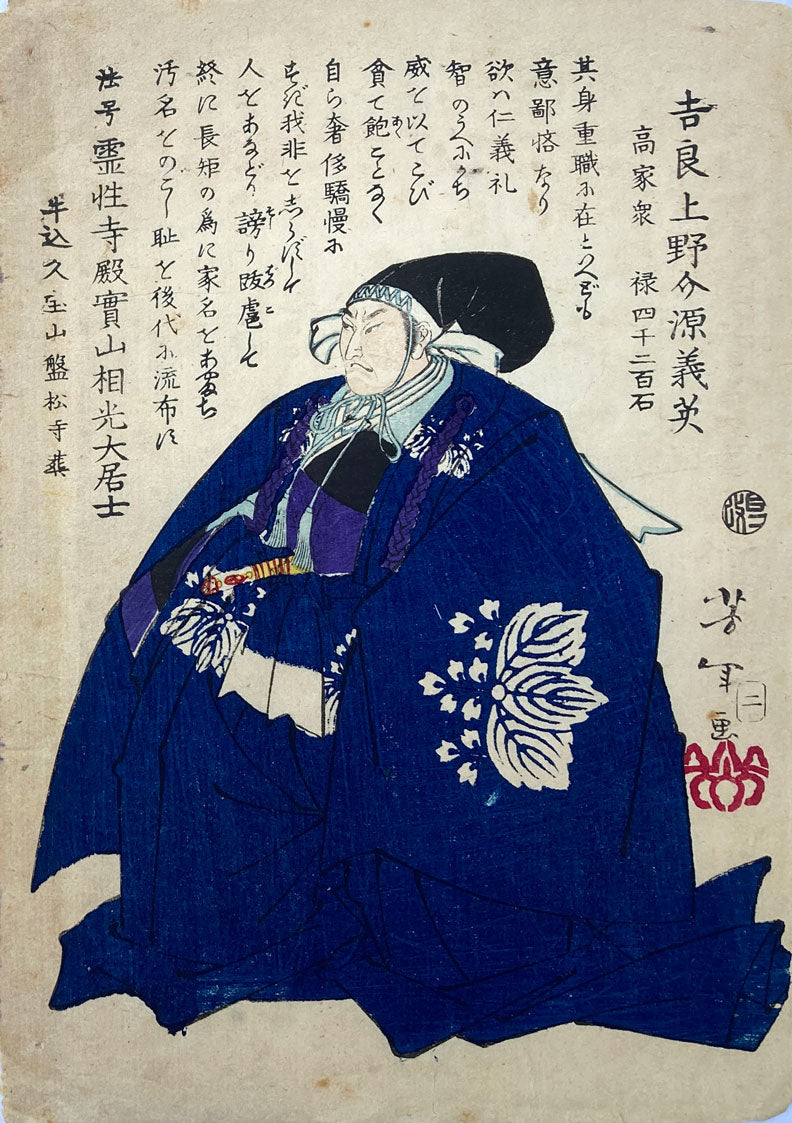 吉良上野介源義英
高家衆 禄四千二百石
其身重職に在といへども
意鄙悋なり
欲ハ仁義礼
智のうへにたち
威を以てこび
貪て飽ことなく
自ら奢侈驕慢に
我非をしらずして
人をあなどり 謗り跋扈して
終に長矩の為に家名をあやまち
汚名をのこし恥を後代に流布す
法号 霊性寺殿實山相光大居士
牛込久宝山盤松寺葬
芳年画
改
二